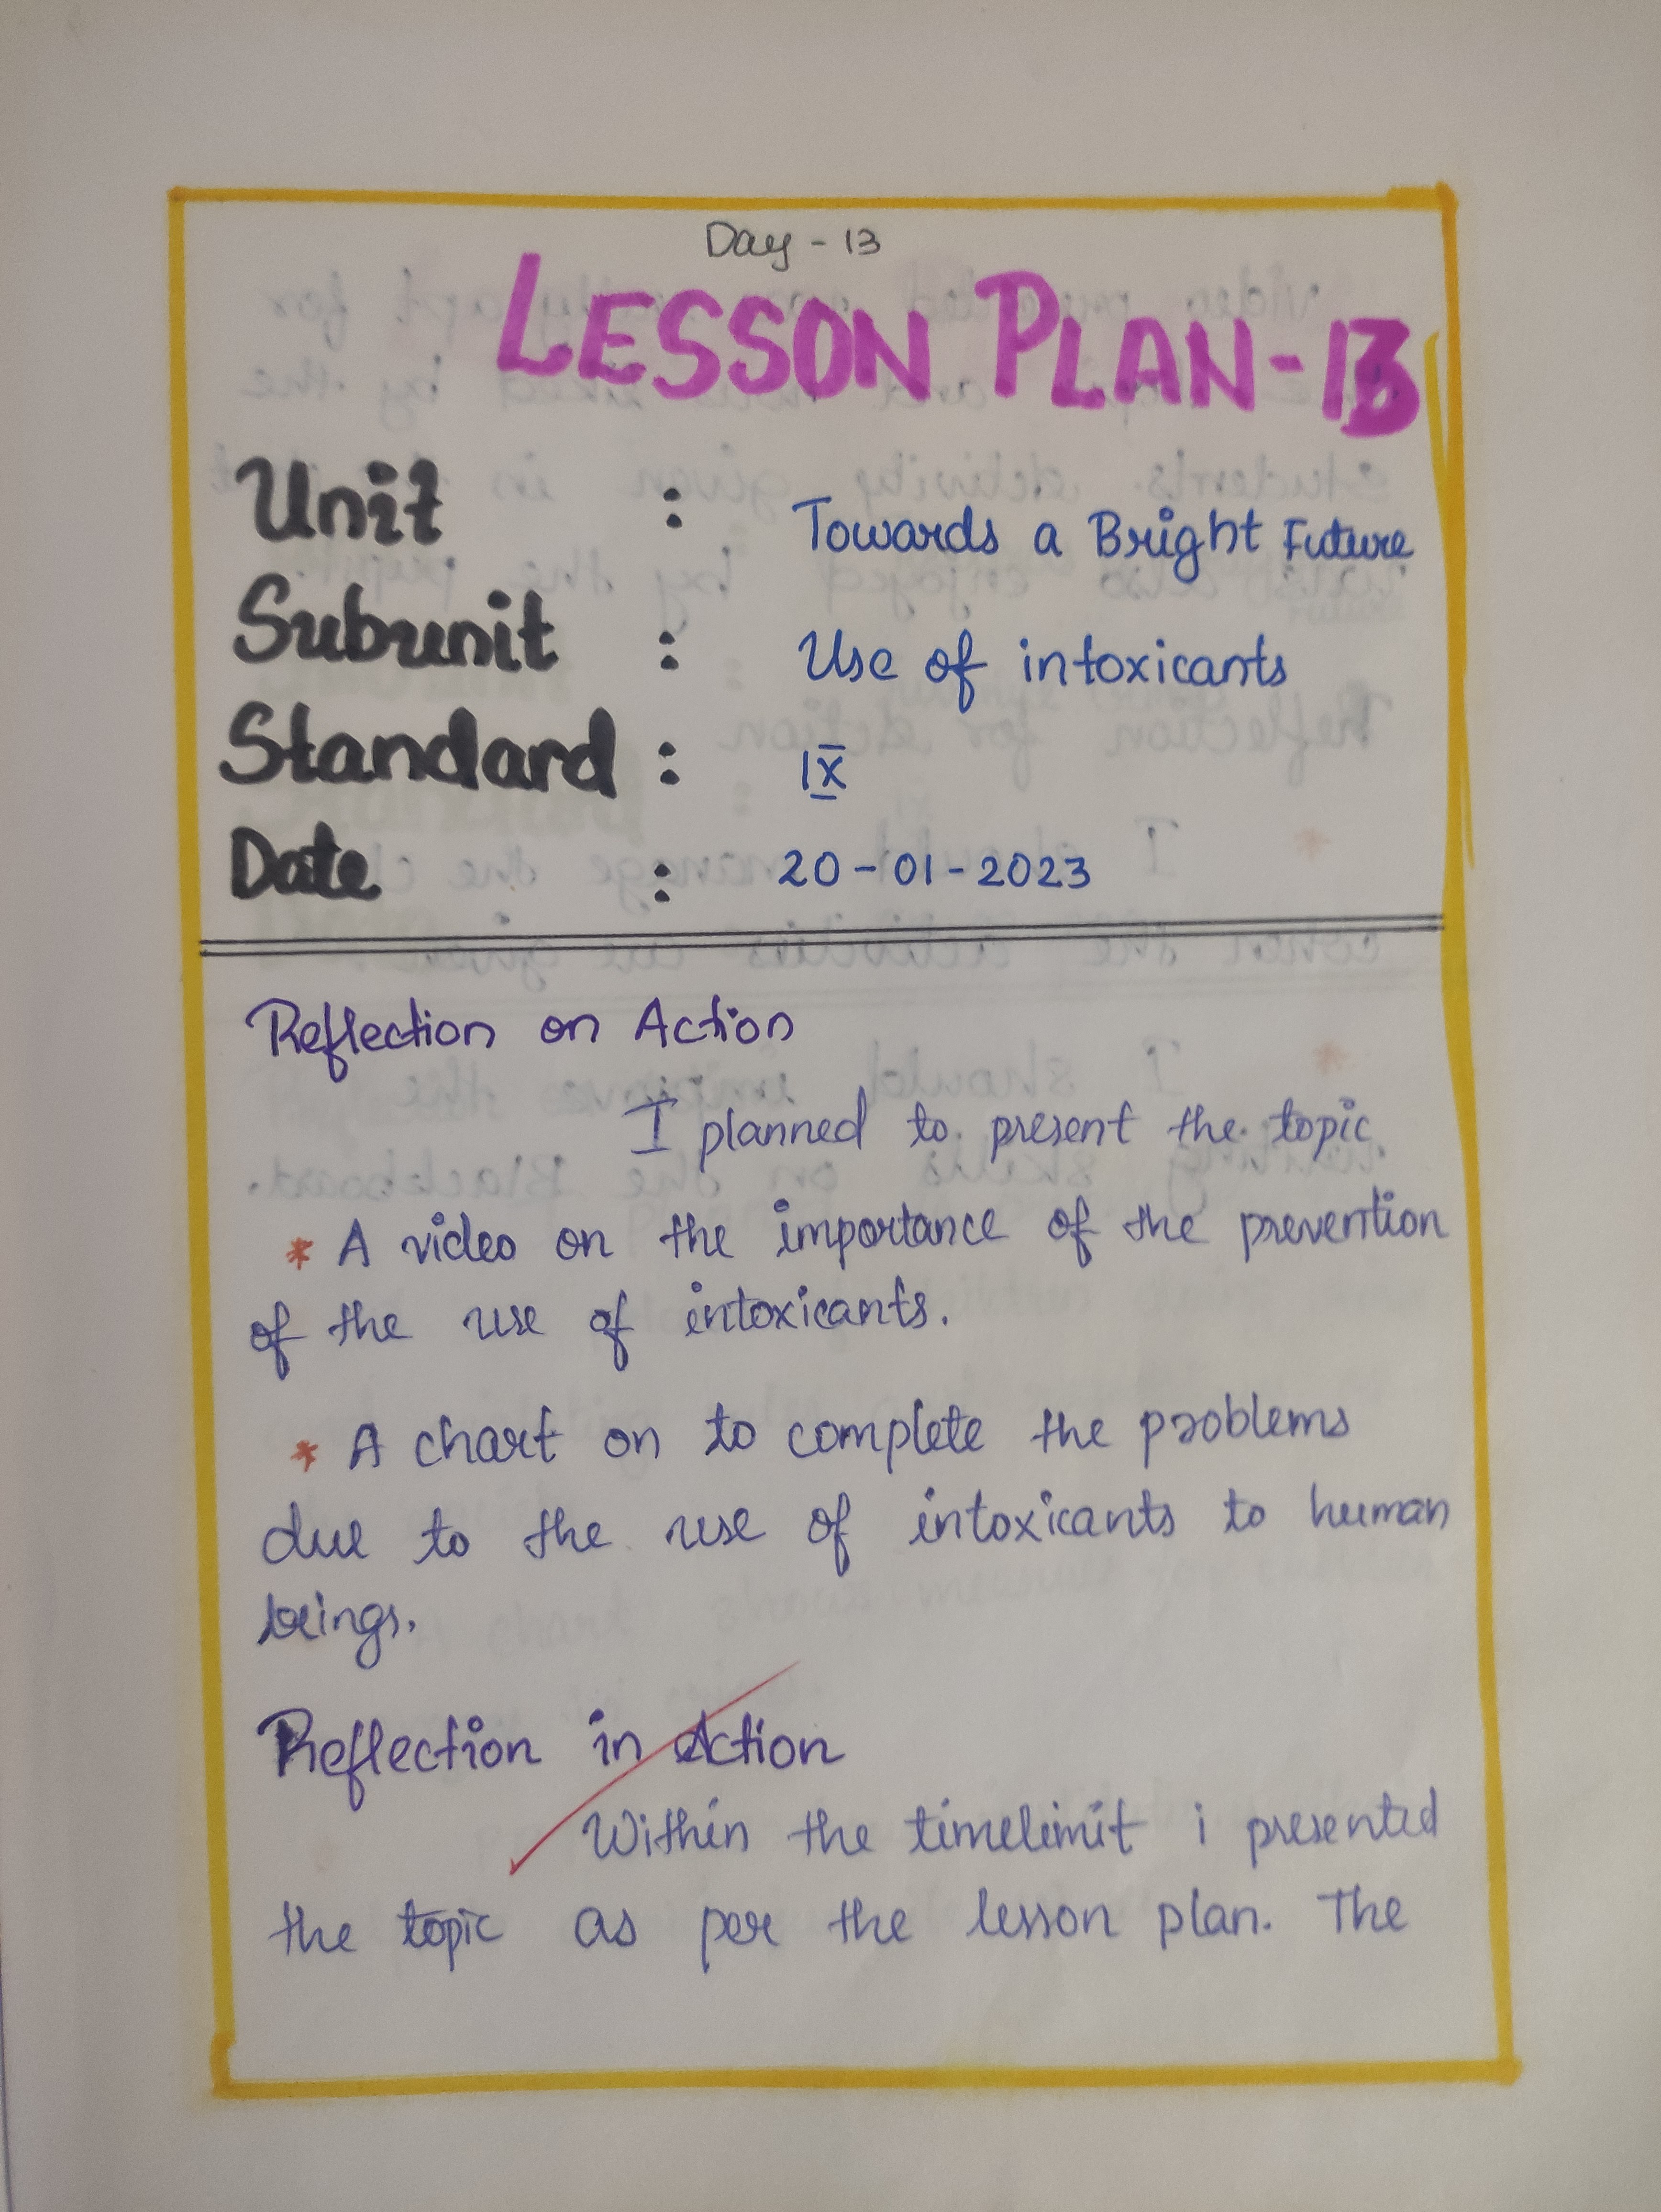 Day - 13
LESSON PLAN-13
Unit : Towards a Bright Future
Subunit : Use of intoxicants
Standard : IX
Date : 20-01-2023
Reflection on Action
I planned to present the topic
* A video on the importance of the prevention
of the use of intoxicants.
* A chart on to complete the problems
due to the use of intoxicants to human
beings.
Reflection in Action
Within the timelimit i presented
the topic as per the lesson plan. The